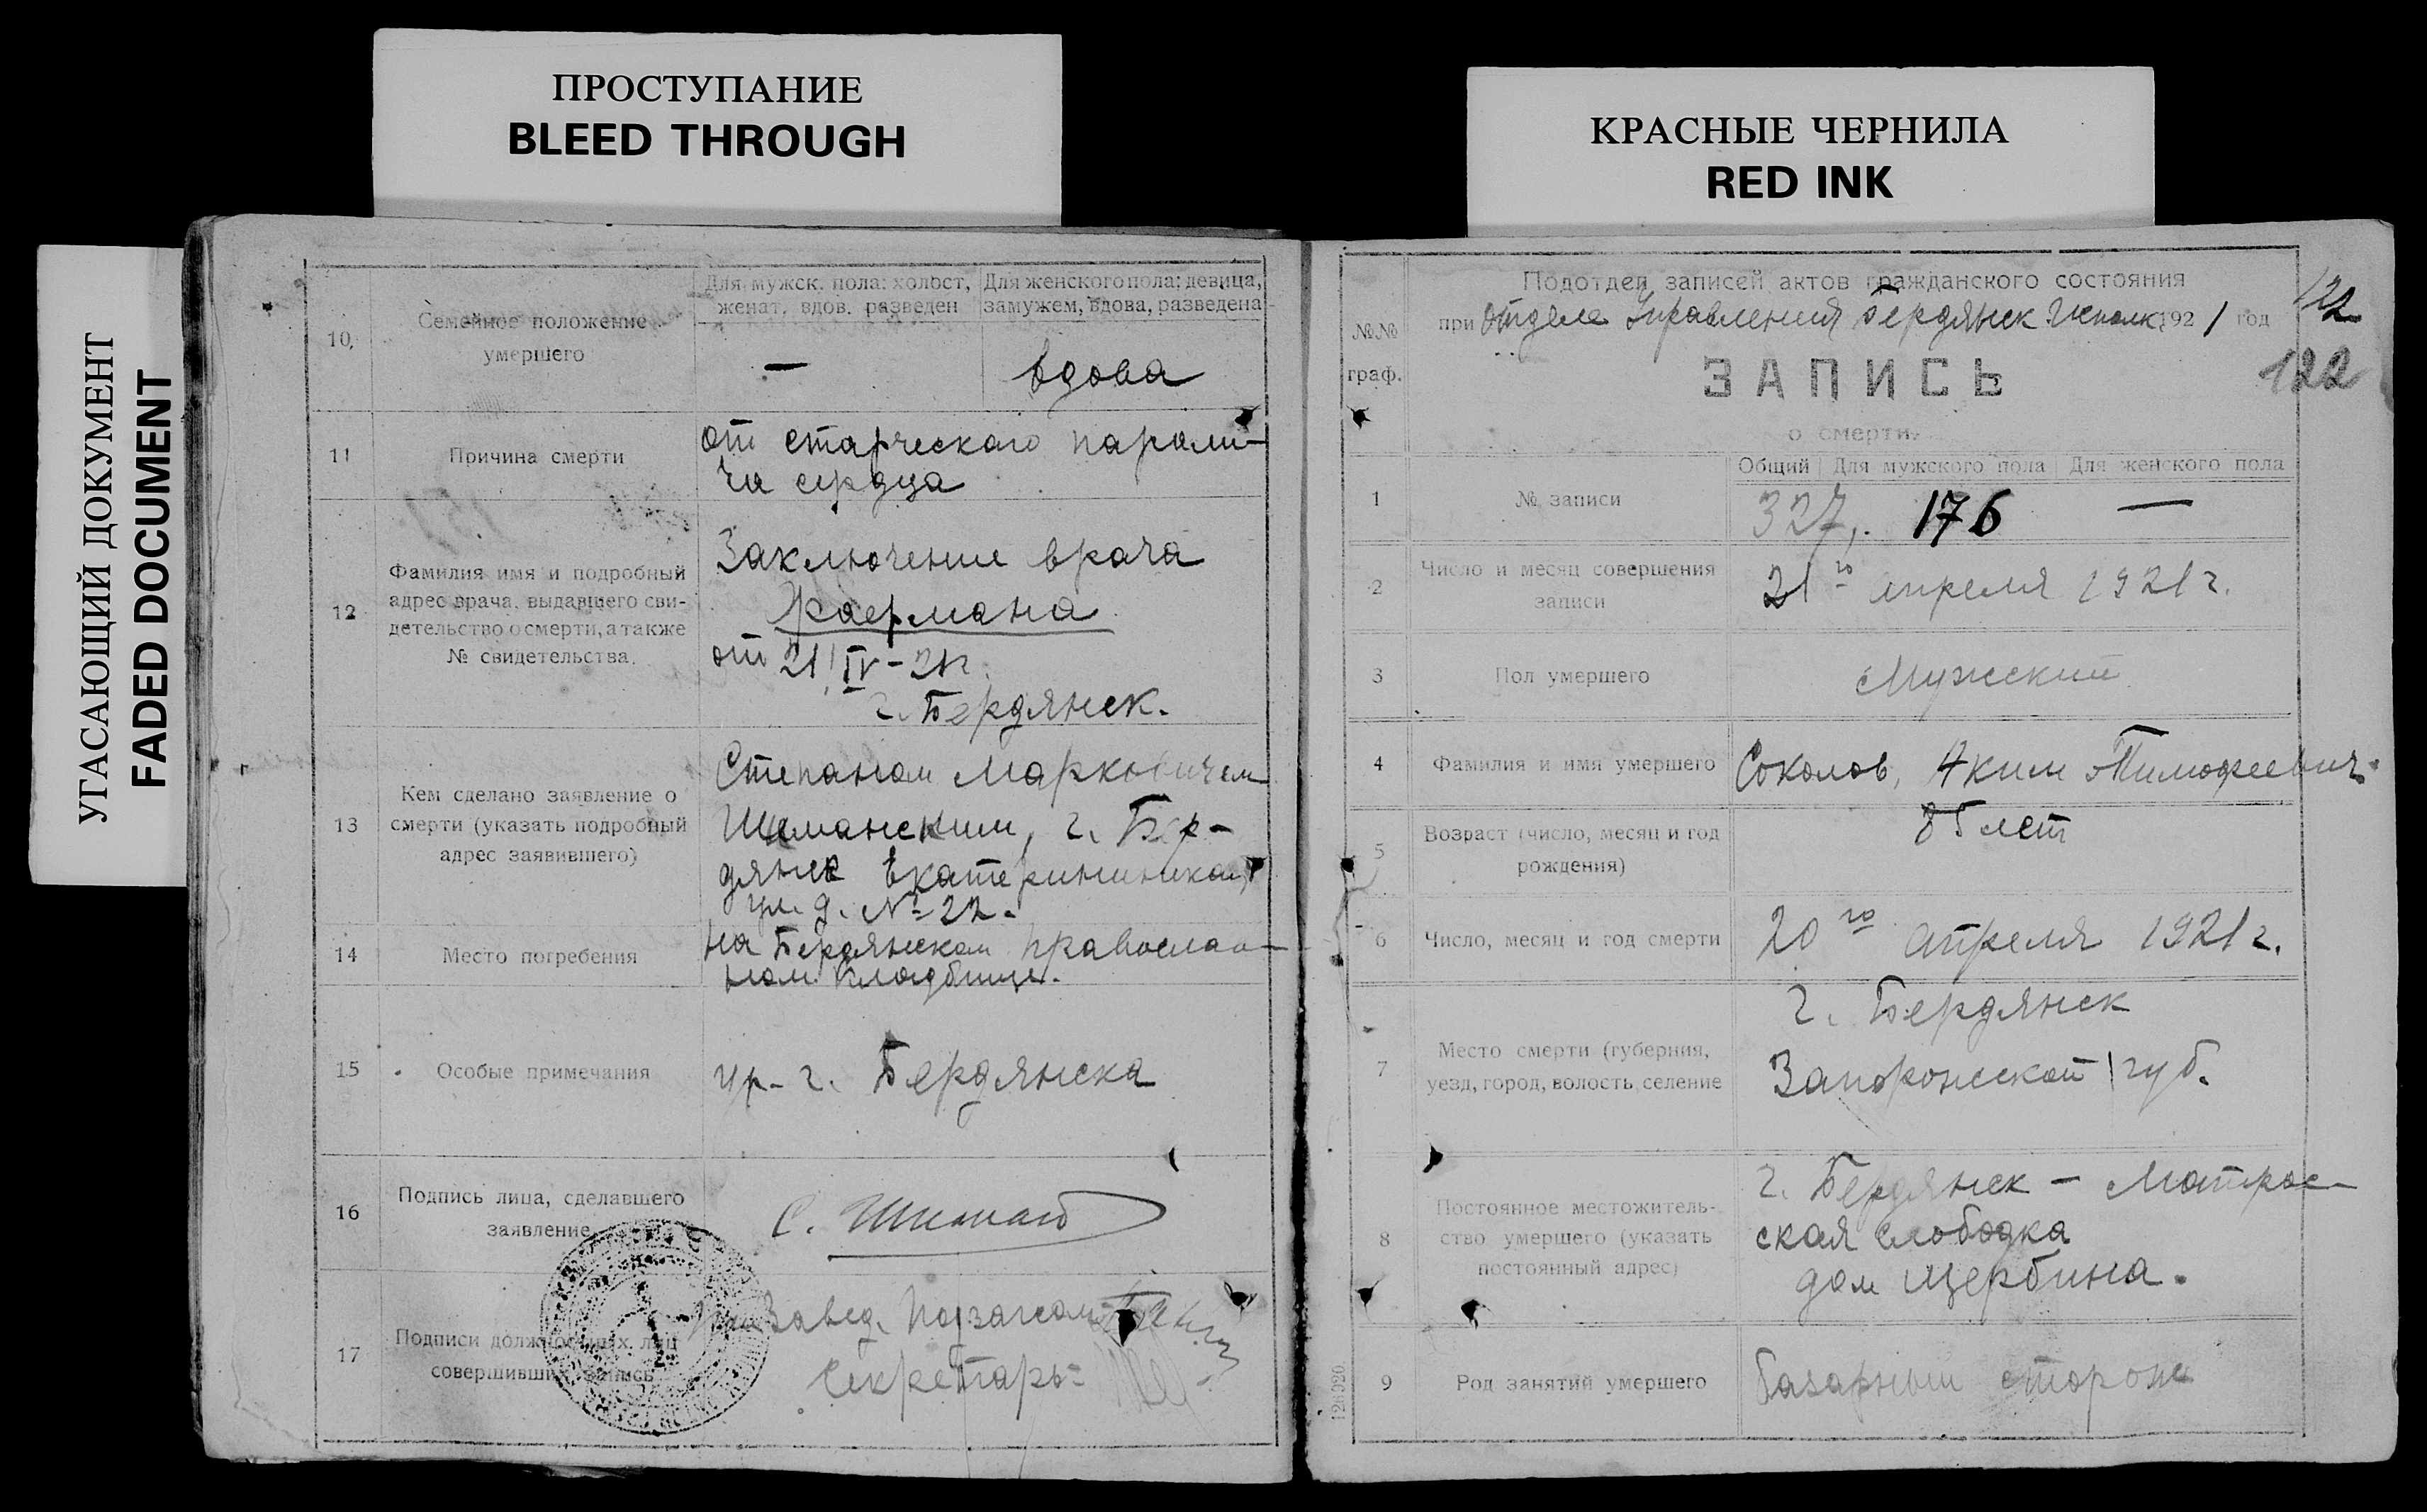 ПРОСТУПАНИЕ
BLEED THROUGH
КРАСНЫЕ ЧЕРНИЛА
RED INK
УГАСАЮЩИЙ ДОКУМЕНТ
FADED DOCUMENT
10.
Семейное положение
умершего
Для мужск. пола: холост,
женат, вдов. разведен
Для женского пола: девица,
замужем, вдова, разведена
—
вдова
11
Причина смерти
от старческаго парали-
ча сердца
12
Фамилия имя и подробный
адрес врача, выдавшего сви-
детельство о смерти, а также
№ свидетельства.
Заключение врача
от 21/IV-21г.
г. Бердянск.
13
Кем сделано заявление о
смерти (указать подробный
адрес заявившего)
Степаном Марковичем
г. Бер-
дянск
ул. д. № 22.
14
Место погребения
на Бердянском православ-
ном кладбище.
15
Особые примечания
ур. г. Бердянска
16
Подпись лица, сделавшего
заявление
С.
17
Подписи должностных лиц
совершивших запись
Завед.
Секретарь
Подотдел записей актов гражданского состояния
при Отделе Управления Бердянск 1921 год
122
122
№№
граф.
ЗАПИСЬ
о смерти.
Общий Для мужского пола Для женского пола
1
№ записи
327. 176 —
2
Число и месяц совершения
записи
21го апреля 1921г.
3
Пол умершего
Мужский
4
Фамилия и имя умершего
Соколов, Аким Тимофеевич.
5
Возраст (число, месяц и год
рождения)
85 лет
6
Число, месяц и год смерти
20го апреля 1921г.
7
Место смерти (губерния,
уезд, город, волость, селение
г. Бердянск
Запорожской губ.
8
Постоянное местожитель-
ство умершего (указать
постоянный адрес)
г. Бердянск — Матрос-
ская слободка
дом Щербина.
9
Род занятий умершего
базарный сторож